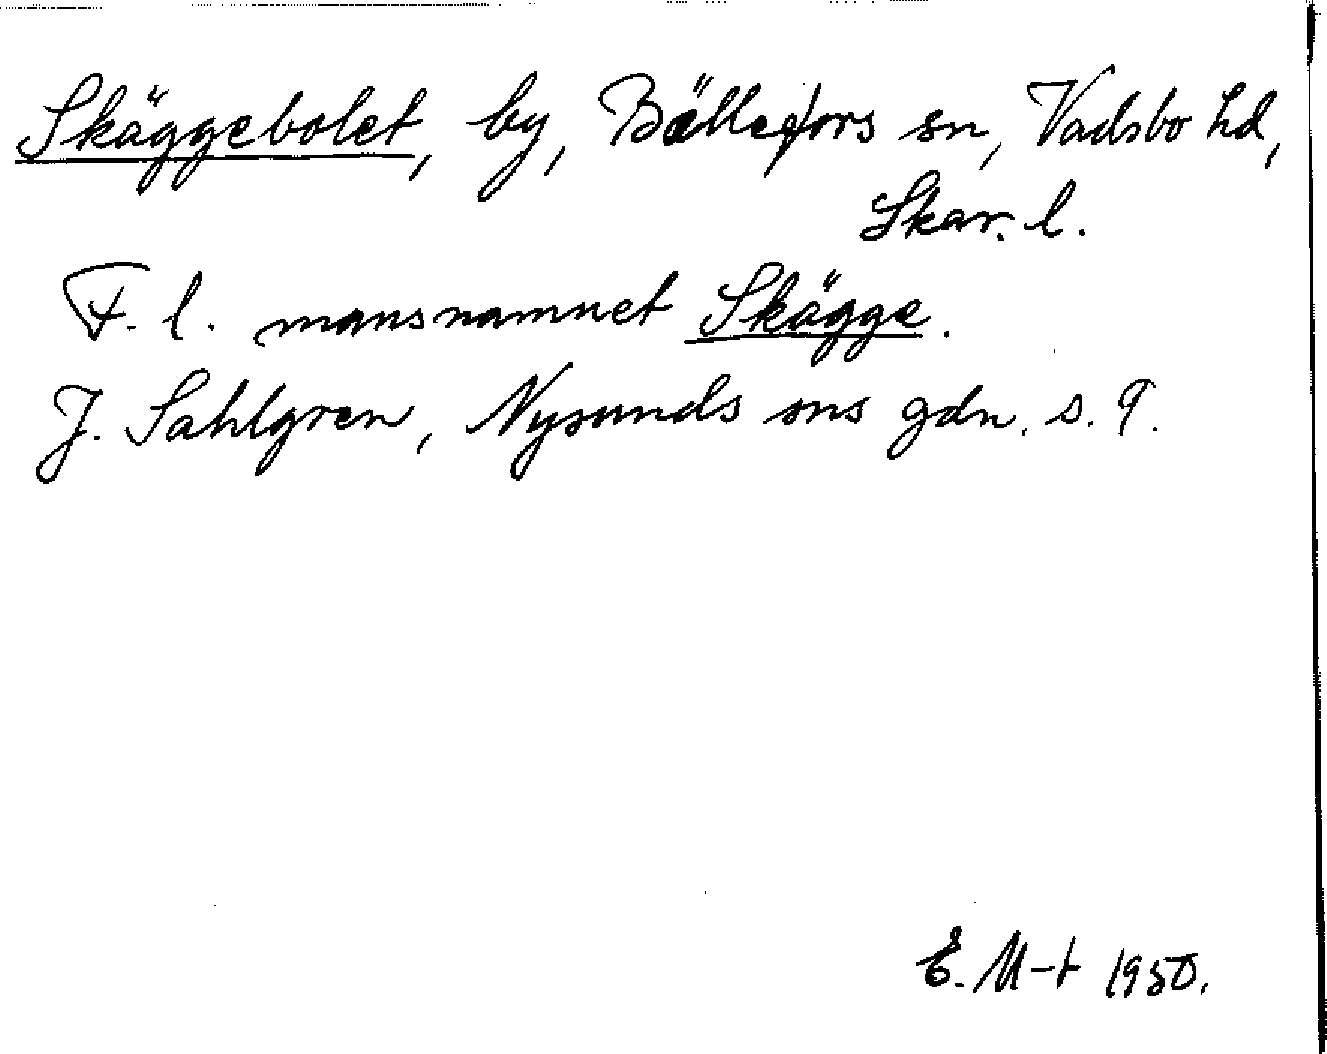 Skäggebolet, by, Bällefors sn, Vadsbo hd,
Skar. l.
F. l. mansnamnet Skägge.
J. Sahlgren, Nysunds sns gdn. s. 9.
E. M-t 1950.